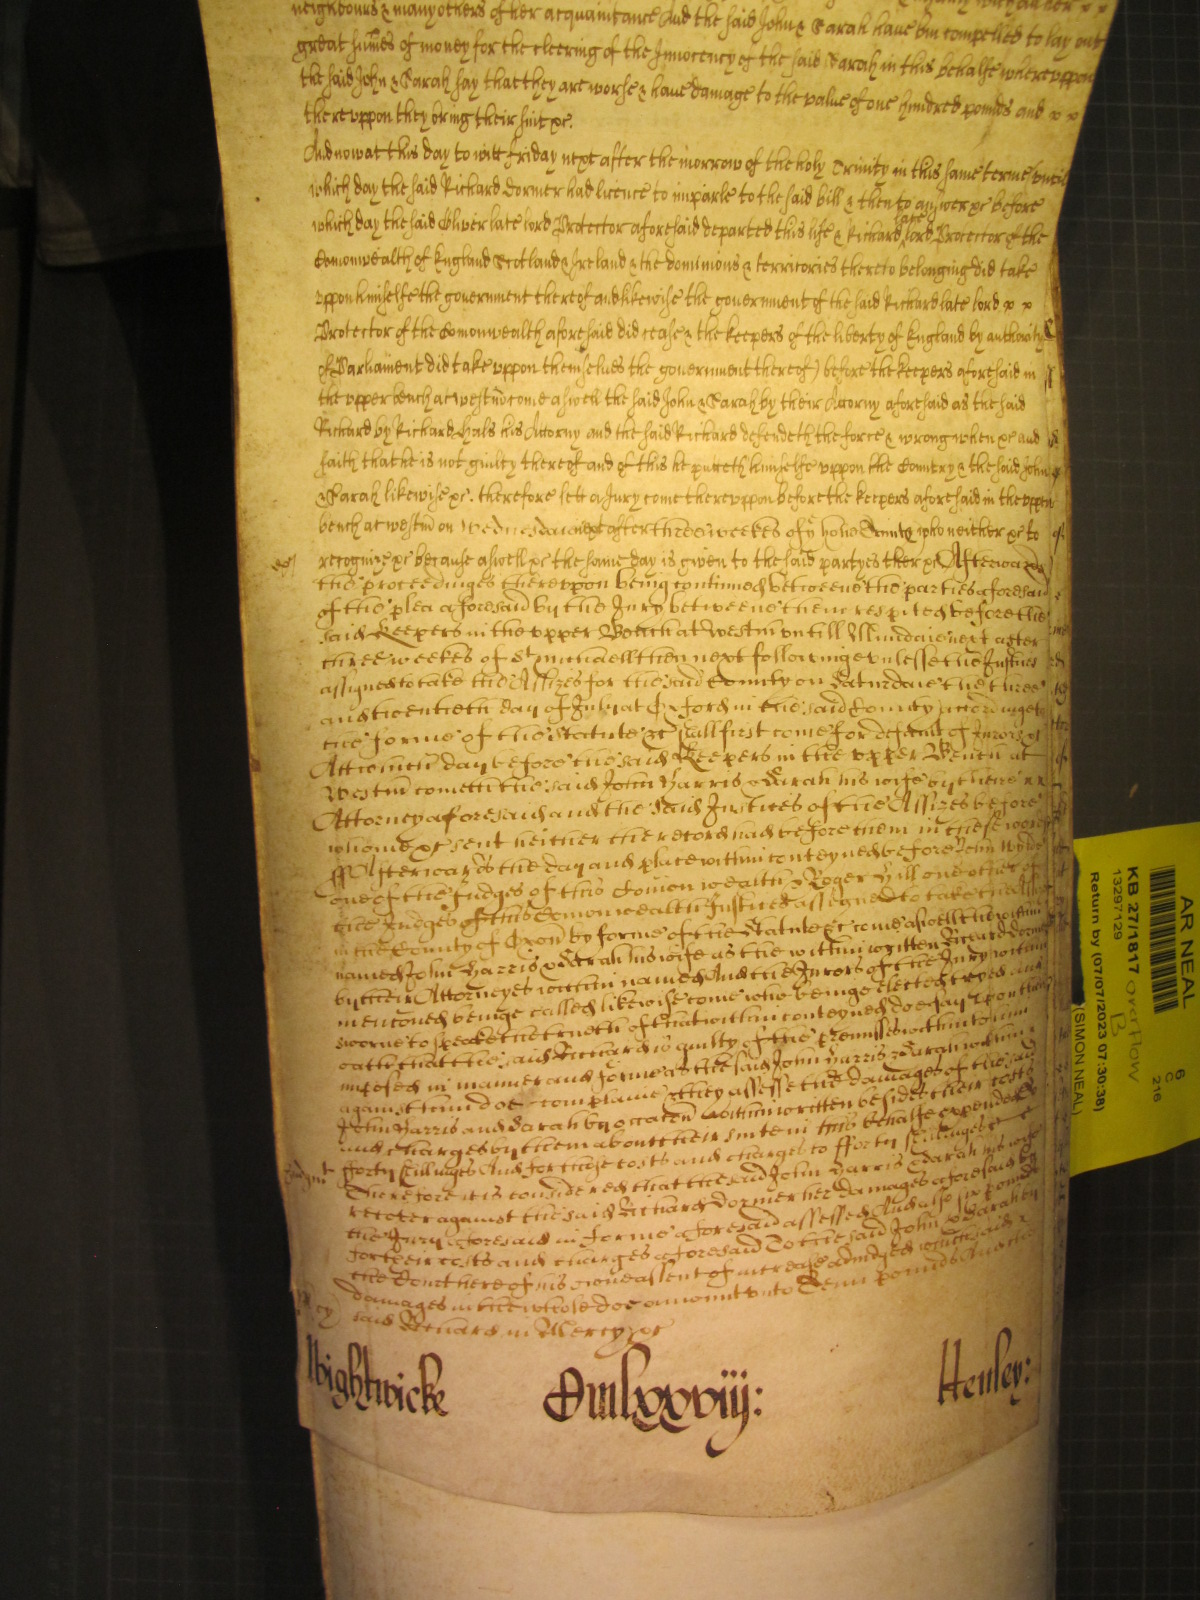 neighbours & many others of her acquaintance And the said John & Sarah have bin compelled to lay out
great sumes of money for the cleering of the Innocency of the said Sarah in this behalfe whereuppon
the said John & Sarah say that they are worse & have damage to the value of one hundred pounds and x x
thereuppon they bring their suit &c.
And now at this day to witt friday next after the morrow of the holy Trinity in this same terme untill
which day the said Richard Dormer had licence to imparle to the said bill & then to answer &c before
which day the said Oliver late lord Protector aforesaid departed this life & Richard late lord Protector of the
Comonwealth of England Scotland & Ireland & the dominions & territories thereto belonging did take
uppon himselfe the government thereof and likewise the government of the said Richard late lord x x
Protector of the Comonwealth aforesaid did cease & the keepers of the liberty of England by authority
of Parliament did take uppon themselues the government thereof) before the keepers aforesaid in
the upper bench at westm come aswell the said John & Sarah by their Attorny aforesaid as the said
Richard by Richard Hals his Attorny and the said Richard defendeth the force & wrong when &c and
saith that he is not guilty thereof and of this he putteth himselfe uppon the Country & the said John
& Sarah likewise &c. therefore lett a Jury come thereuppon before the keepers aforesaid in the upper
bench at westm on Wednesdaie next after three weekes of ye holie Trinity who neither &c to
recognize &c because aswell &c the same day is given to the said partyes ther &c Afterwards
the proceedinges thereupon being continued betweene the parties aforesaid
of the plea aforesaid by the Jury betweene them respited before the
said Keepers in the upper Bench at Westm untill Mundaie next after
three weekes of St Michaell then next followinge unlesse the Justices
assigned to take the Assizes for the said County on Saturdaie the three
and twentieth day of July at Oxford in the said County accordinge to
the forme of the Statute &c shall first come for default of Jurors &c
Att which day before the said Keepers in the upper Bench at
Westm cometh the said John Harris & Sarah his wife by theire x x
Attorney aforesaid and the said Justices of the Assizes before
whome &c sent heither the record had before them in these wordes
ss Afterwards the day and place within conteyned before John Wylde
one of the Judges of this Comon wealth & Roger Hill one other of
the Judges of this Comonwealth Justices assigned to take the Assizes
in the County of Oxon by forme of the Statute &c come aswell the within
named John Harris & Sarah his wife as the within written Richard Dormer
by their Attorneyes within named And the Jurors of the Jury within
mentoned beinge called likewise come who beinge elected tryed and
sworne to speake the trueth of that within conteyned doe say upon their
oath that the said Richard is guilty of the Premisses within to him
imposed in manner and forme as the said John Harris & Sarah within
against him doe complaine & they assesse the damages of the said
John Harris and Sarah by occaton within written besides their costs
and charges by them about their suite in this behalfe expended to
forty shillinges And for those costs and charges to fforty shillinges &c
Therefore it is considered that the said John Harris & Sarah his wife
recover against the said Richard Dormer her damages aforesaid by
the Jury aforesaid in forme aforesaid assessed And also six pounds
for their costs and charges aforesaid To the said John & Sarah by
the Court here of his owne assent of increase adiudged which said
damages in the whole doe amount unto Tenn pounds And the
said Richard in Mercy &c
Wightwicke Dmlxxviij: Henley:
AR NEAL
6
C
216
KB 27/1817 overflow
B
13297129
Return by (07/07/2023 07:30:38)
(SIMON NEAL)